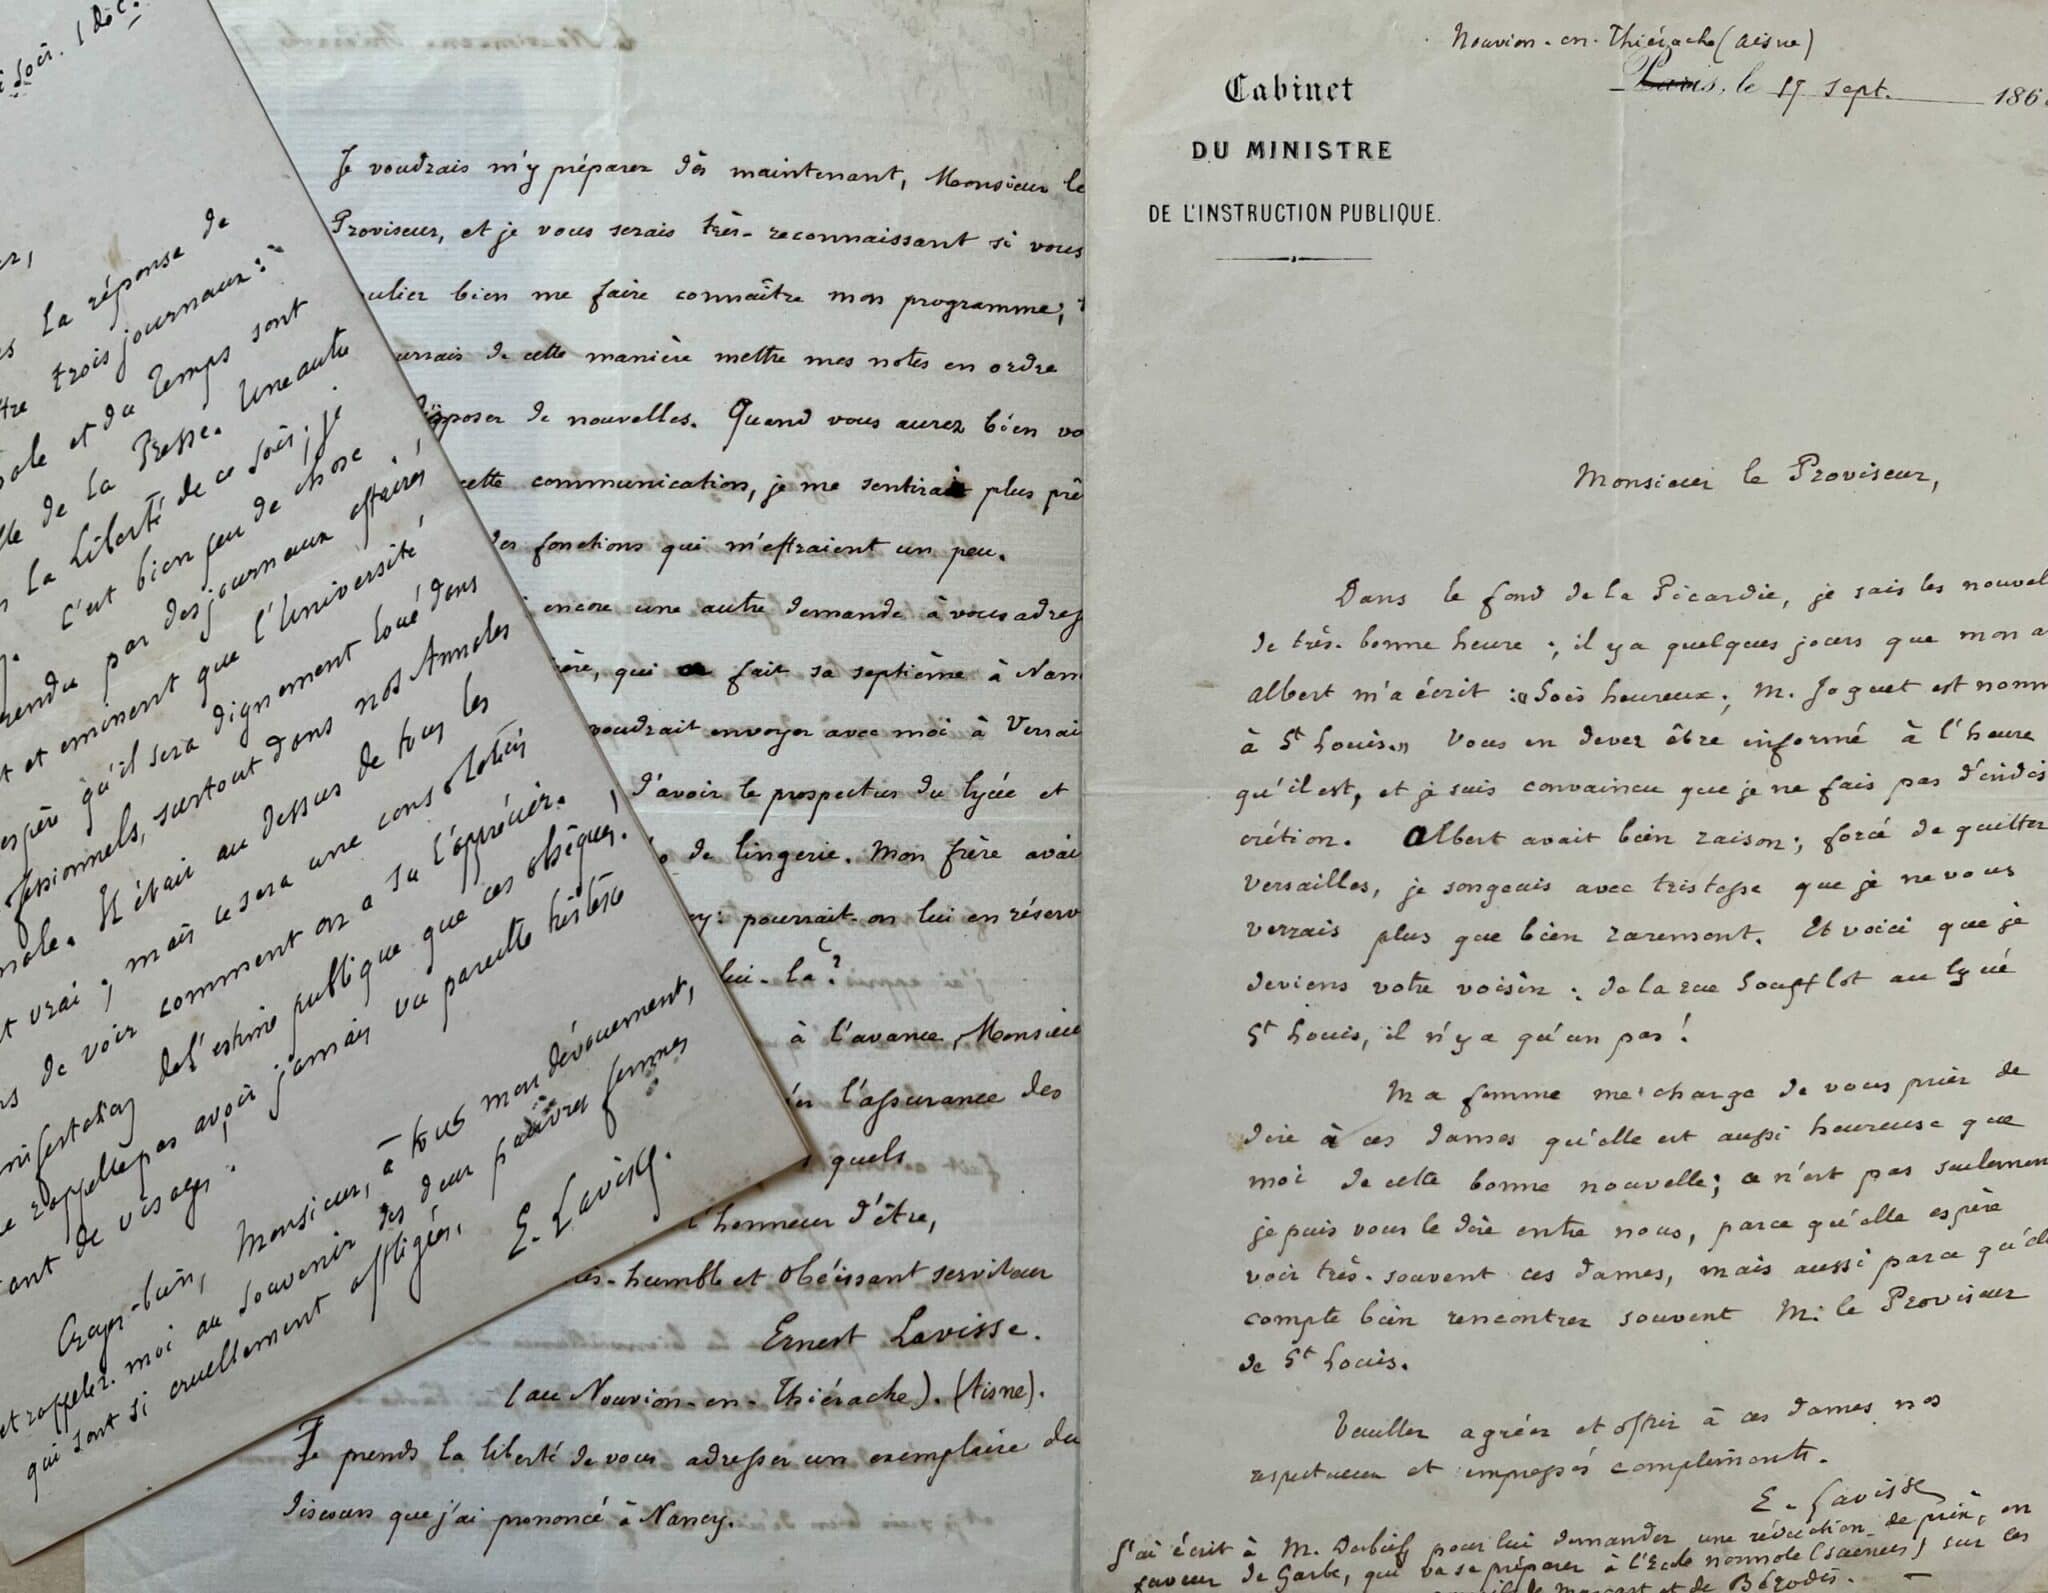 soir. 1 déc.
la réponse de
trois journaux :
et du Temps sont
de la Presse. Une autre
la Liberté de ce soir ; je
c'est bien peu de chose
par des journaux affairés,
et eminent que l'Université
qu'il sera dignement loué dans
surtout dans nos Annales
Il était au dessus de tous les
vrai ; mais ce sera une consolation
de voir comment on a su l'apprécier.
de l'estime publique que ces obsèques,
pas avoir jamais vu pareille tristesse
tant de visages.
Croyez-bien, Monsieur, à tous mon dévouement,
et rappelez-moi au souvenir des deux pauvres femmes
qui sont si cruellement affligées.
E. Lavisse.
Je voudrais m'y préparer dès maintenant, Monsieur le
Proviseur, et je vous serais très-reconnaissant si vous
bien me faire connaître mon programme ;
de cette manière mettre mes notes en ordre
de nouvelles. Quand vous aurez bien vo
cette communication, je me sentirais plus prê
des fonctions qui m'effraient un peu.
encore une autre demande à vous adres
qui a fait sa septième à Nan
voudrait envoyer avec moi à Versai
d'avoir le prospectus du lycée et
de lingerie. Mon frère avai
pourrait-on lui en réserv
lui-là ?
à l'avance, Monsieu
l'assurance des
quels
l'honneur d'être,
ès-humble et obéissant serviteur
Ernest Lavisse.
(au Nouvion-en-Thiérache). (Aisne).
Je prends la liberté de vous adresser un exemplaire du
discours que j'ai prononcé à Nancy.
Nouvion-en-Thiérache (Aisne)
Cabinet
DU MINISTRE
DE L'INSTRUCTION PUBLIQUE.
Paris, le sept. 186
Monsieur le Proviseur,
Dans le fond de la Picardie, je sais les nouvel
de très-bonne heure ; il y a quelques jours que mon a
Albert m'a écrit : « Sois heureux ; M. Joguet est nomm
à St Louis. » Vous en devez être informé à l'heure
qu'il est, et je suis convaincu que je ne fais pas d'indis
crétion. Albert avait bien raison ; forcé de quitter
Versailles, je songeais avec tristesse que je ne vous
verrais plus que bien rarement. Et voici que je
deviens votre voisin : de la rue Soufflot au lycée
St Louis, il n'y a qu'un pas !
Ma femme me charge de vous prier de
dire à ces dames qu'elle est aussi heureuse que
moi de cette bonne nouvelle ; ce n'est pas seulement
je puis vous le dire entre nous, parce qu'elle espère
voir très-souvent ces dames, mais aussi parce qu'elle
compte bien rencontrer souvent M. le Proviseur
de St Louis.
Veuillez agréer et offrir à ces dames nos
respectueux et empressés compliments.
E. Lavisse
J'ai écrit à M. pour lui demander une réduction de prix, en
faveur de Garbe, qui va se préparer à l'Ecole normale (sciences) sur les
et de